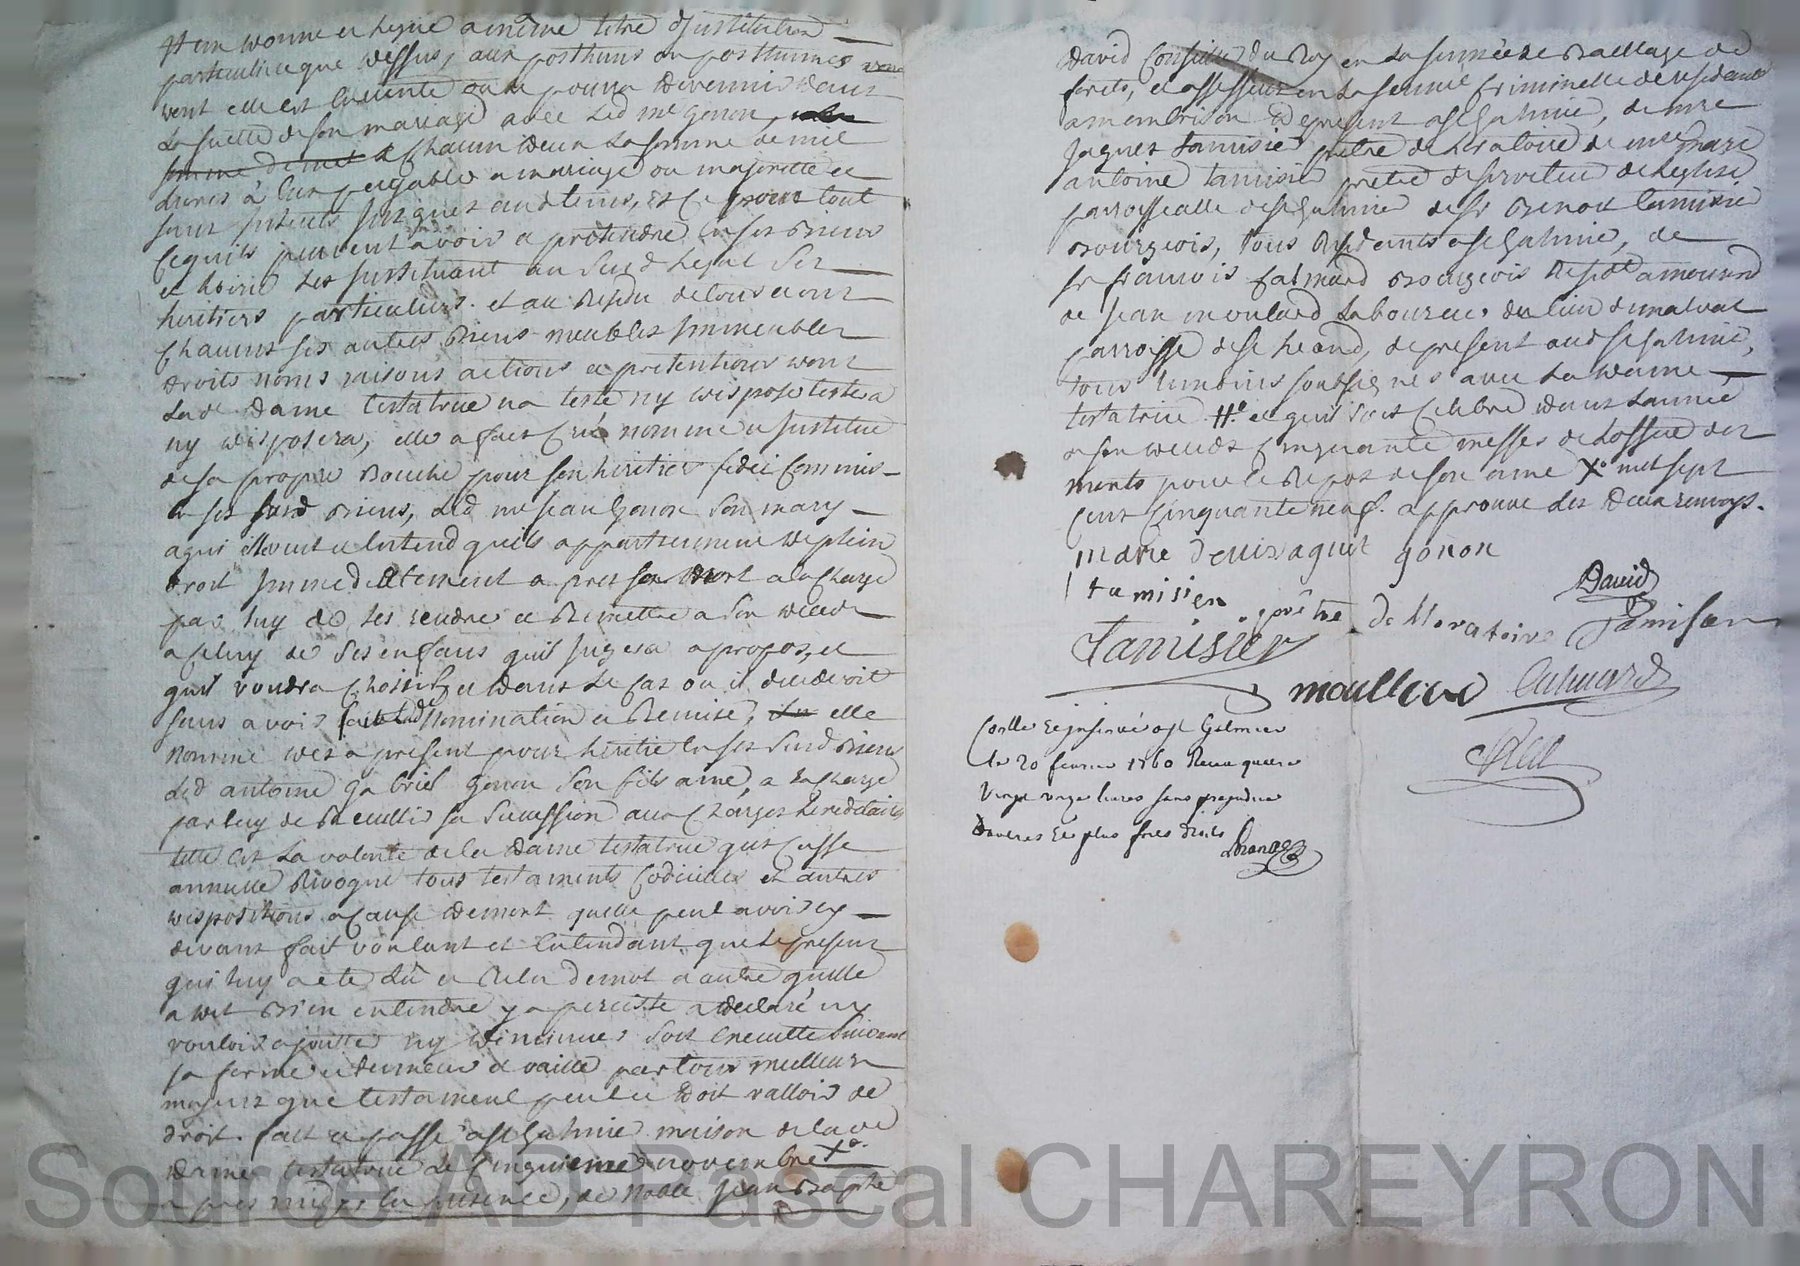 Item donne et legue a meme titre d'institution
particuliere que dessus, aux posthums ou posthumes
dont elle est enceinte ou le pourra devennir dans
la suitte de son mariage avec led me Gonon
a Chacun deux la somme de mil
livres à eux payable a mariage ou majoritté et
sans interets jusques aud tems, et ce pour tout
ce quils peuvent avoir a pretendre en ses Biens
et hoirie les instituant au surd legat ses
heritiers particuliers. et au Residu de tous et uns
Chacuns ses autres Biens meubles immeubles
droits noms raisons actions et pretentions dont
lad. Dame testatrice na testé ny disposé testera
ny disposera, elle a fait Créé nommé et institué
de sa propre Bouche pour son heritier fidei Commis-
en ses surd Biens, led me Jean Gonon son mary
a qui elle veut et entend quils appartiennent de plein
droit immediattement apres sa mort a la charge
par luy de les rendre et Remettre a son deceds
a celuy de ses enfans quil jugera apropos, et
quil voudra Choisir et dans le cas ou il decederoit
sans avoir fait lad nomination et Remise, elle
nomme des a present pour heritier en ses surd Biens
led antoine gabriel Gonon son fils ainé, a la charge
par luy de Recueillir sa succession aux charges hereditaires
telle est la volonté de la dame testatrice qui Casse
annulle Revoque tous testaments Codicilles et autres
dispositions a cause de mort quelle peut avoir cy
devant fait voulant et entendant que le present
qui luy a eté lû et Relu de mot a autre quelle
a dit Bien entendre y a percisté a declaré ny
vouloir ajoutter ny diminuer soit executté suivant
sa forme et teneur et vaille par tous meilleurs
moyens que testament peut et doit valloir de
droit. fait et passé a st Galmier maison de lad
dame testatrice le cinquieme novembre Xo.
apres midy en presence, de Noble Jean Baptte
David Conseiller du Roy en la sennéchée Baillage de
forets, et assesseur en la sennée Criminelle de residante
a montbrison de present a st Galmier, de mre
Jaques tamisier pretre de Loratoire de mre marc
antoine tamisier pretre desserviteur de Leglise
parroissialle de st Galmier de sr Benoit tamisier
Bourgeois, tous Residants a st Galmier, de
sr francois Bourgeois
de Jean moulard Laboureur du lieu de malval
parroisse de st heand, de present aud st Galmier,
tous temoins soussignés avec la dame
testatrice #. et quil soit Celebré dans lannée
de son deceds Cinquante messes de Loffice des
morts pour le Repos de son ame Xo mil sept
cent Cinquante neuf. approuve les deux renvoys.
marie denizaguet gonon
David
J tamisier prêtre de Loratoire Tamisier
Tamisier
moullard
Conllé et insinué a st Galmier
le 20 fevrier 1760 Receu quatre
Vingt onze livres sans prejudice
Dautres et plus fors droits
Source AD Pascal CHAREYRON